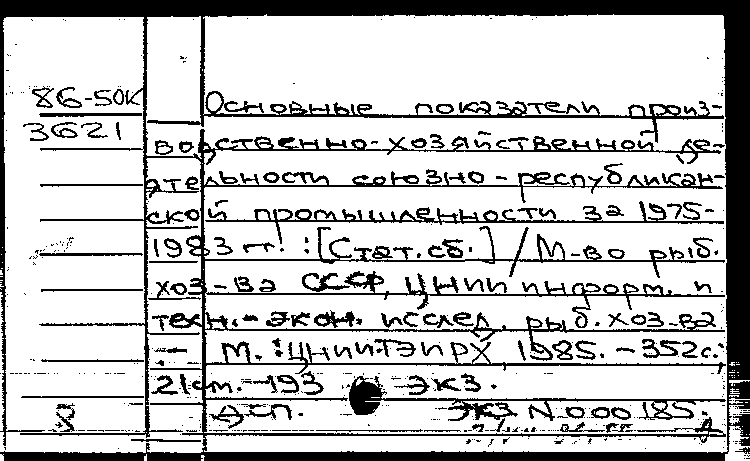 86-50К
3621
Основные показатели произ-
водственно-хозяйственной де-
ятельности союзно-республикан-
ской промышленности за 1975-
1983 гг. : [Стат. сб.] / М-во рыб.
хоз-ва СССР, ЦНИИ информ. и
техн.-экон. исслед. рыб. хоз-ва
.- М. : ЦНИИТЭИРХ, 1985. - 352 с.;
21 см. - 193 экз.
ДСП. Экз N 000185.